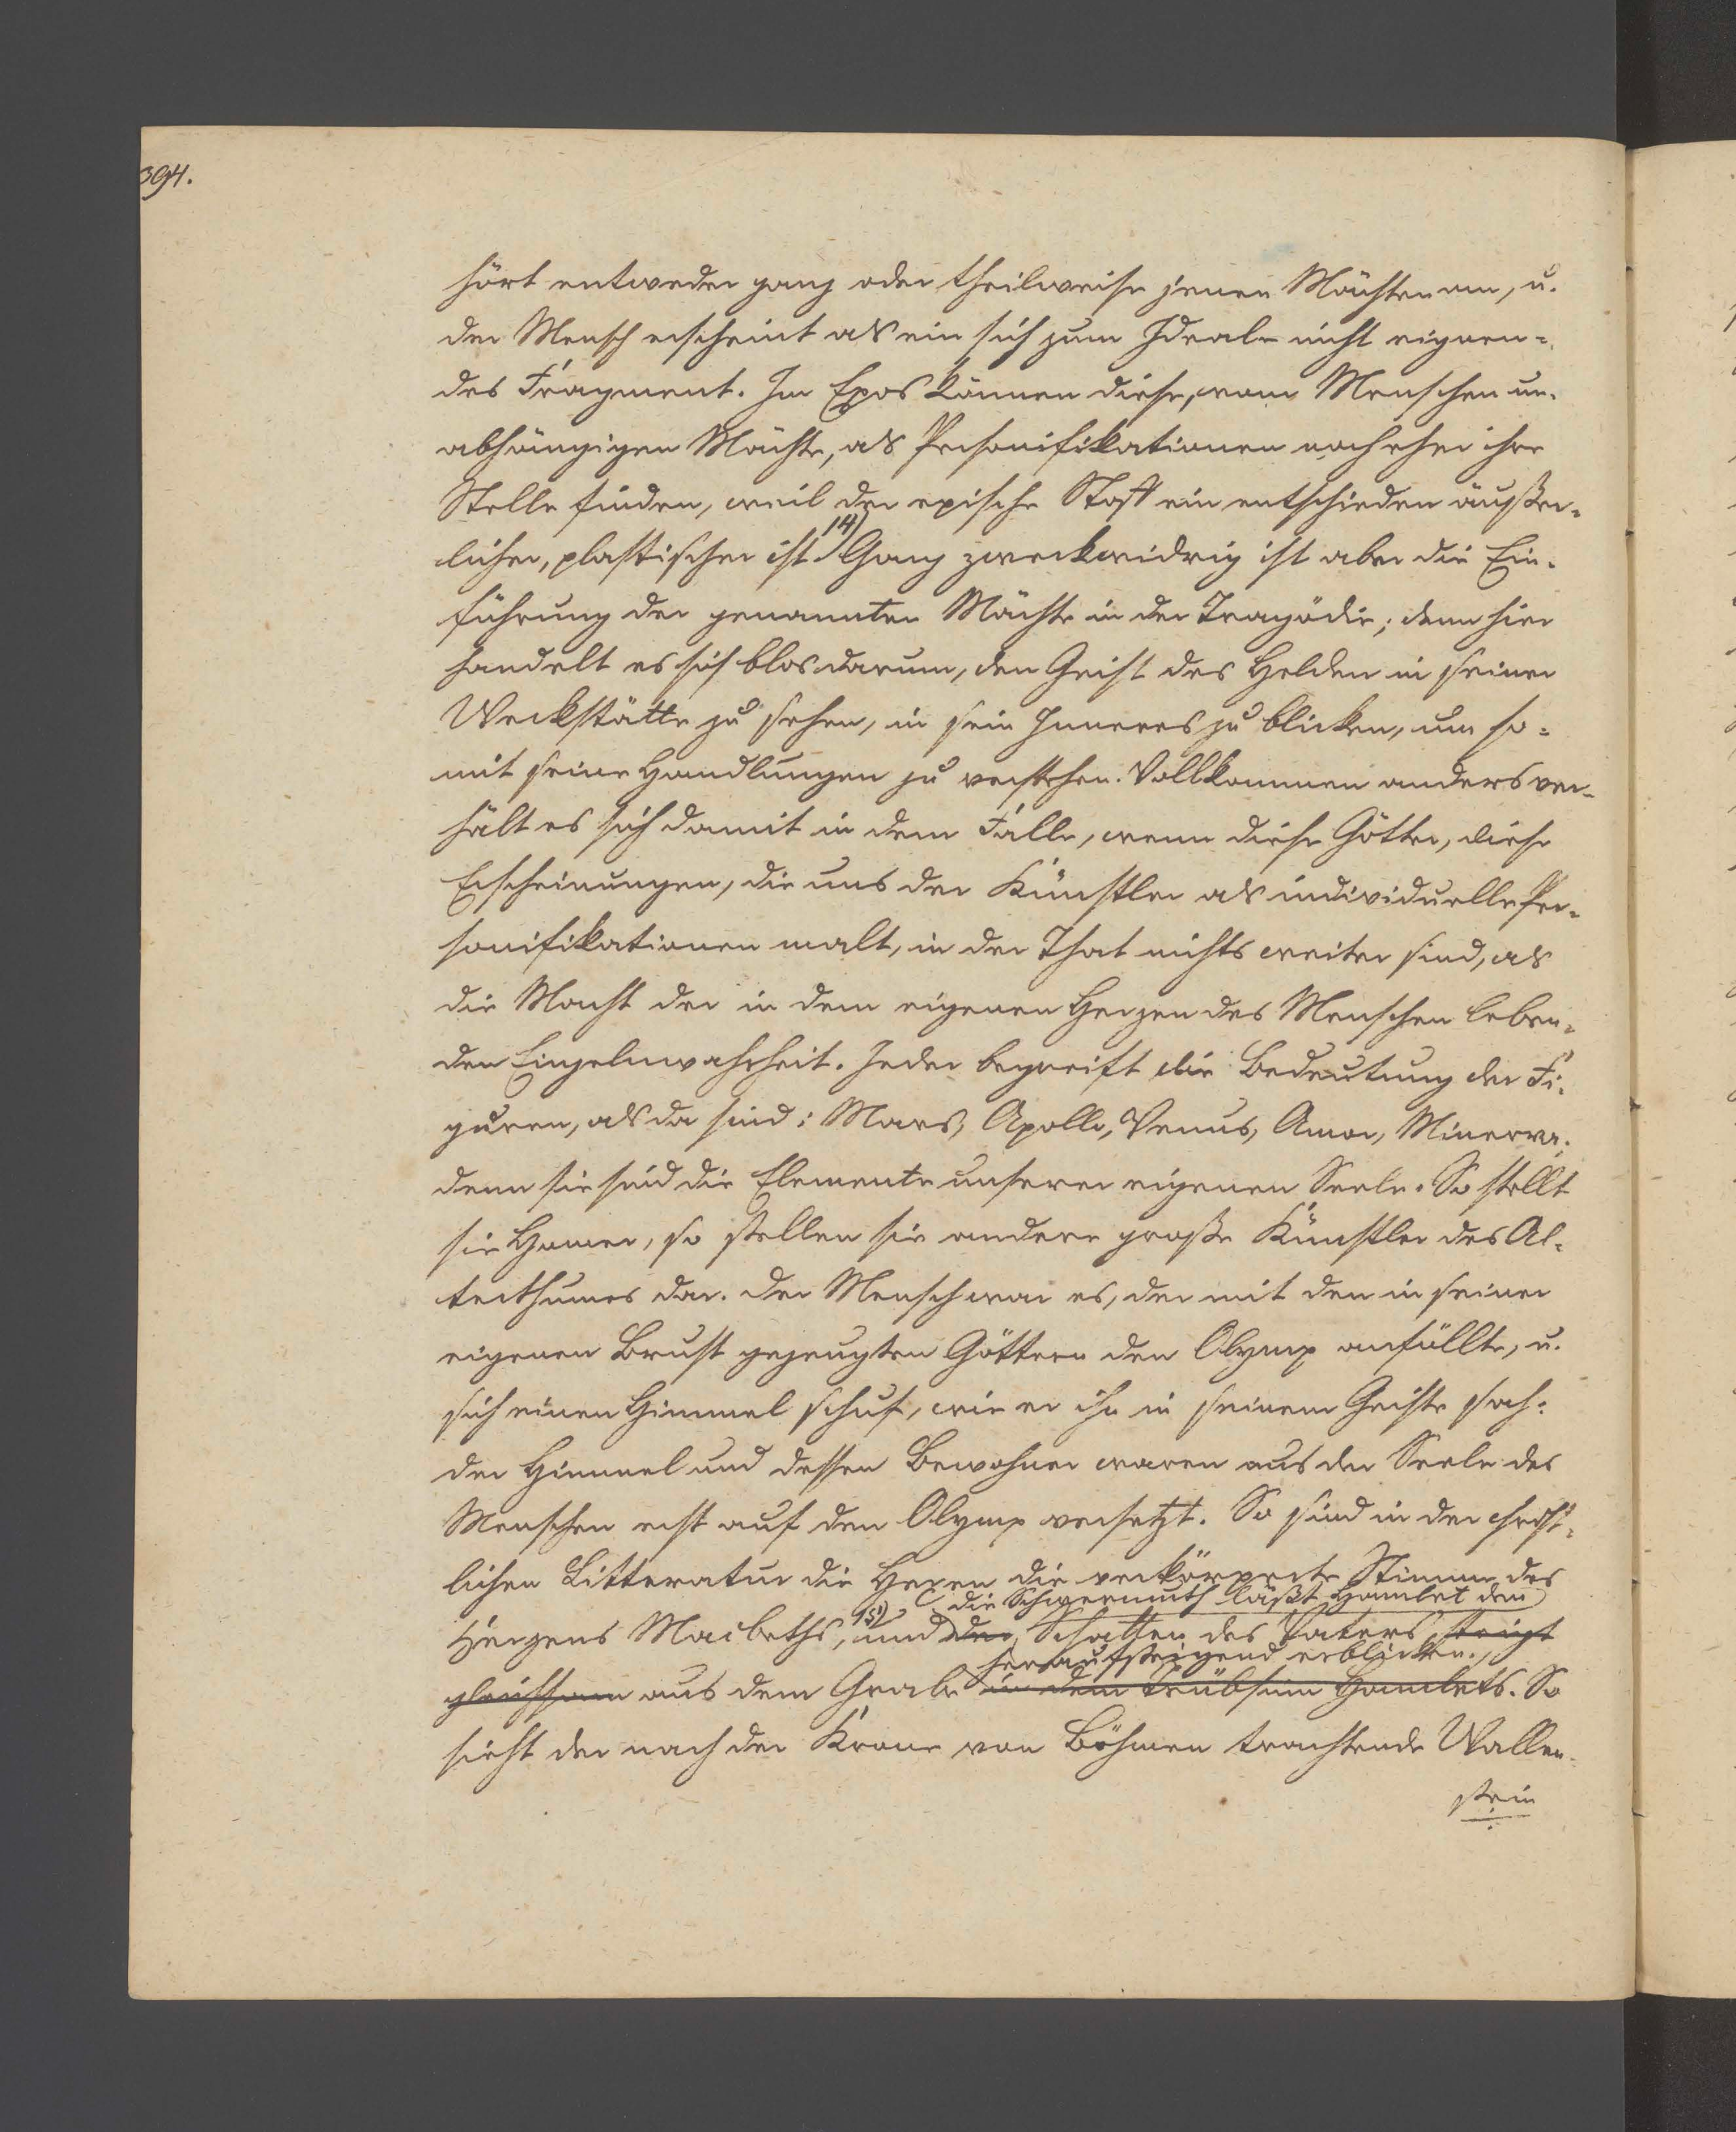 394.
hört entweder ganz oder theilweise jenen Mächten an, u.
der Mensch erscheint als ein sich zum Ideale nicht eignen-
des Fragment. Im Epos können diese, vom Menschen un-
abhängigen Mächte, als Personifikationen noch eher ihre
Stelle finden, weil der epische Stoff ein entschieden äußer-
licher, plastischer ist 14) Ganz zweckwidrig ist aber die Ein-
führung der genannten Mächte in der Tragödie; denn hier
handelt es sich blos darum, den Geist des Helden in seiner
Werkstätte zu sehen, in sein Inneres zu blicken, um so-
mit seine Handlungen zu verstehen. Vollkommen anders ver-
hält es sich damit in dem Falle, wenn diese Götter, diese
Erscheinungen, die uns der Künstler als individuelle Per-
sonifikationen malt, in der That nichts weiter sind, als
die Macht der in dem eigenen Herzen des Menschen leben-
den Einzelnwahrheit. Jeder begreift die Bedeutung der Fi-
guren, als da sind: Mars, Apollo, Venus, Amor, Minerva;
denn sie sind die Elemente unserer eigenen Seele. So stellt
sie Homer, so stellen sie andere große Künstler des Al-
terthumes dar. Der Mensch war es, der mit den in seiner
eigenen Brust gezeugten Göttern den Olymp anfüllte, u.
sich einen Himmel schuf, wie er ihn in seinem Geiste sah:
der Himmel und dessen Bewohner waren aus der Seele des
Menschen erst auf den Olymp versetzt. So sind in der christ-
lichen Litteratur die Hexen die verkörperte Stimme des
die Schwermuth läßt Hamlet den
Herzens Macbeths, 15) und der Schatten des Vaters steigt
heraufsteigend erblicken.
gleichsam aus dem Grabe in dem Trübsinn Hamlets. So
sieht der nach der Krone von Böhmen trachtende Wallen-
stein